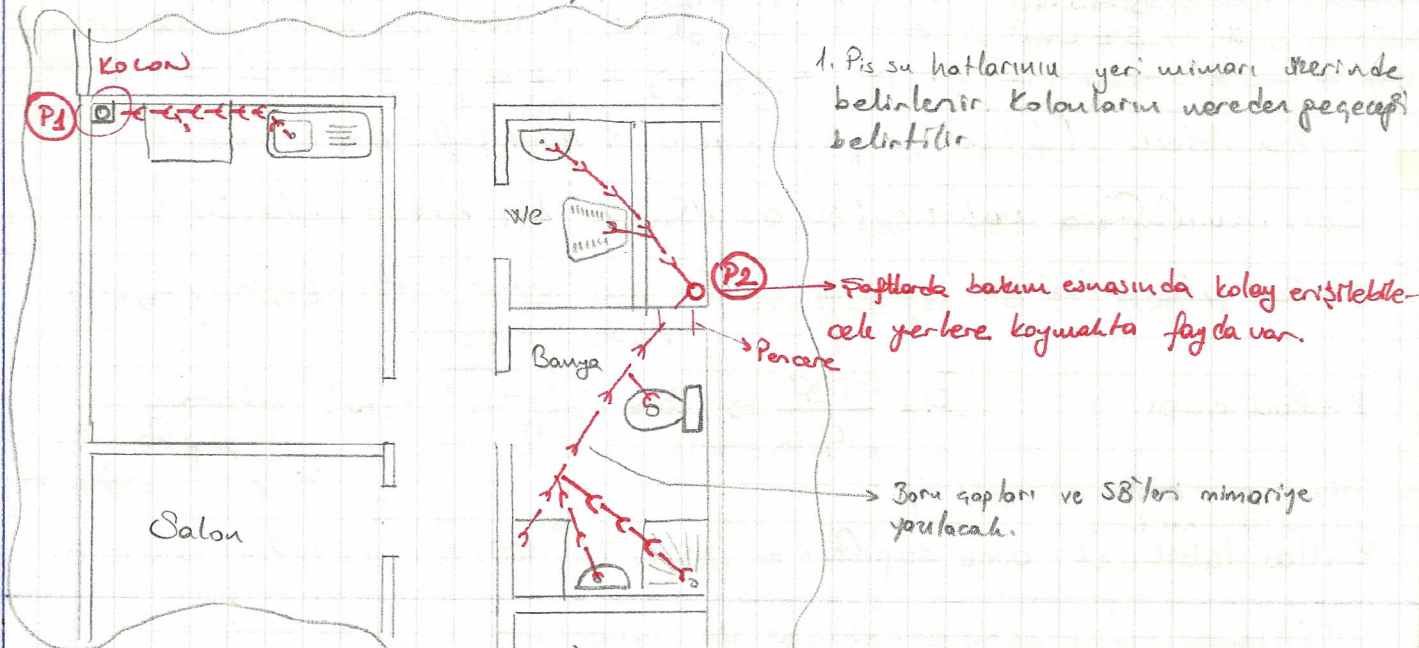 KOLON
P1
1. Pis su hatlarının yeri mimari üzerinde
belirlenir. Kolonların nereden geçeceği
belirtilir
WC
P2
Şaftlarda bakım esnasında kolay erişilebile-
cek yerlere koymakta fayda var.
Pencere
Banyo
Boru çapları ve SB'leri mimariye
yazılacak.
Salon